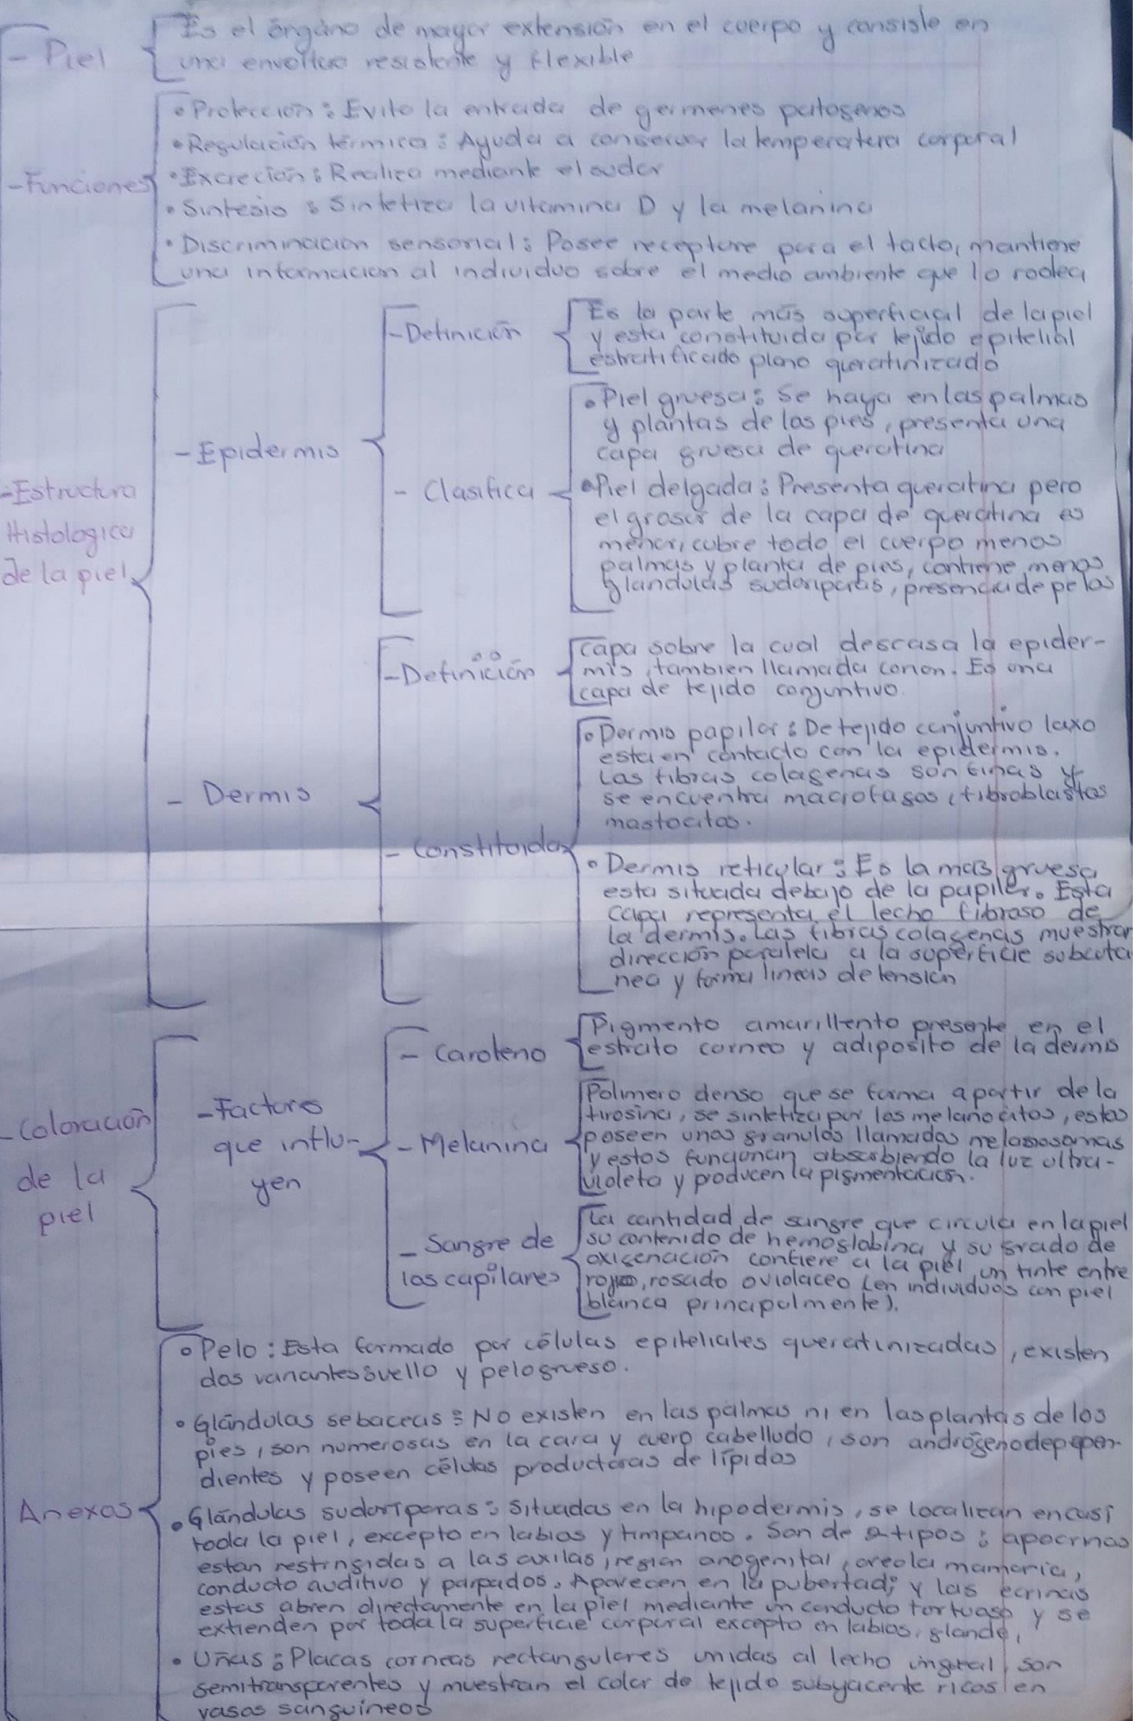 - Piel
Es el órgáno de mayor extensión en el cuerpo y consiste en
una envoltua resistente y flexible
- Funciones
• Protección : Evita la entrada de germenes patogenos
• Regulación térmica : Ayuda a conservar la temperatura corporal
• Excreción : Realiza mediante el sudor
• Sintesis : Sintetiza la vitamina D y la melanina
• Discriminación sensorial : Posee recepture para el tacto, mantiene
una información al individuo sobre el medio ambiente que lo rodea
- Estructura
Histologica
de la piel
- Epidermis
- Definición
Es la parte más superficial de la piel
y esta constituida por tejido epitelial
estratificado plano queratinizado
- Clasifica
• Piel gruesa : Se haya en las palmas
y plantas de los pies, presenta una
capa gruesa de queratina
• Piel delgada : Presenta queratina pero
el grosor de la capa de queratina es
menor, cubre todo el cuerpo menos
palmas y planta de pies, contiene menos
glandulas sudoriparas, presencia de pelos
- Dermis
- Definición
Capa sobre la cual descasa la epider-
mis, tambien llamada corion. Es una
capa de tejido conjuntivo.
- Constituidax
• Dermis papilar : De tejido conjuntivo laxo
esta en contacto con la epidermis.
Las fibras colagenas son finas y
se encuentra macrofagos, fibroblastos
mastocitos.
• Dermis reticular : Es la mas gruesa
esta situada debajo de la papiler. Esta
capa representa el lecho fibroso de
la dermis. Las fibras colagenas muestran
dirección paralela a la superficie subcuta
nea y forma lineas de tensión
- Coloración
de la
piel
- Factores
que influ-
yen
- Caroteno
Pigmento amarillento presente en el
estrato corneo y adiposito de la dermis
- Melanina
Polimero denso que se forma apartir de la
tirosina, se sintetiza por los melanocitos, estos
poseen unos granulos llamados melanosomas
y estos funcionan absorbiendo la luz ultra-
violeta y producen la pigmentación.
- Sangre de
los capilares
La cantidad de sangre que circula en la piel
su contenido de hemoglobina y su grado de
oxigenación confiere a la piel un tinte entre
rojo, rosado o violaceo (en individuos con piel
blanca principalmente).
Anexos
• Pelo : Esta formado por células epiteliales queratinizadas, existen
dos variantes : vello y pelo grueso.
• Glándulas sebaceas : No existen en las palmas ni en las plantas de los
pies, son numerosas en la cara y cuero cabelludo, son andrógenodepepen-
dientes y poseen células productoras de lípidos
• Glándulas sudoríperas : Situadas en la hipodermis, se localizan en casi
toda la piel, excepto en labios y timpanos. Son de 2 tipos : apocrinas
estan restringidas a las axilas, region anogenital, areola mamaria,
conducto auditivo y parpados. Aparecen en la pubertad; y las ecrinas
estas abren directamente en la piel mediante un conducto tortuoso y se
extienden por toda la superficie corporal excepto en labios, glande,
• Uñas : Placas corneas rectangulares unidas al lecho ungueal, son
semitransparentes y muestran el color de tejido subyacente ricos en
vasos sanguineos